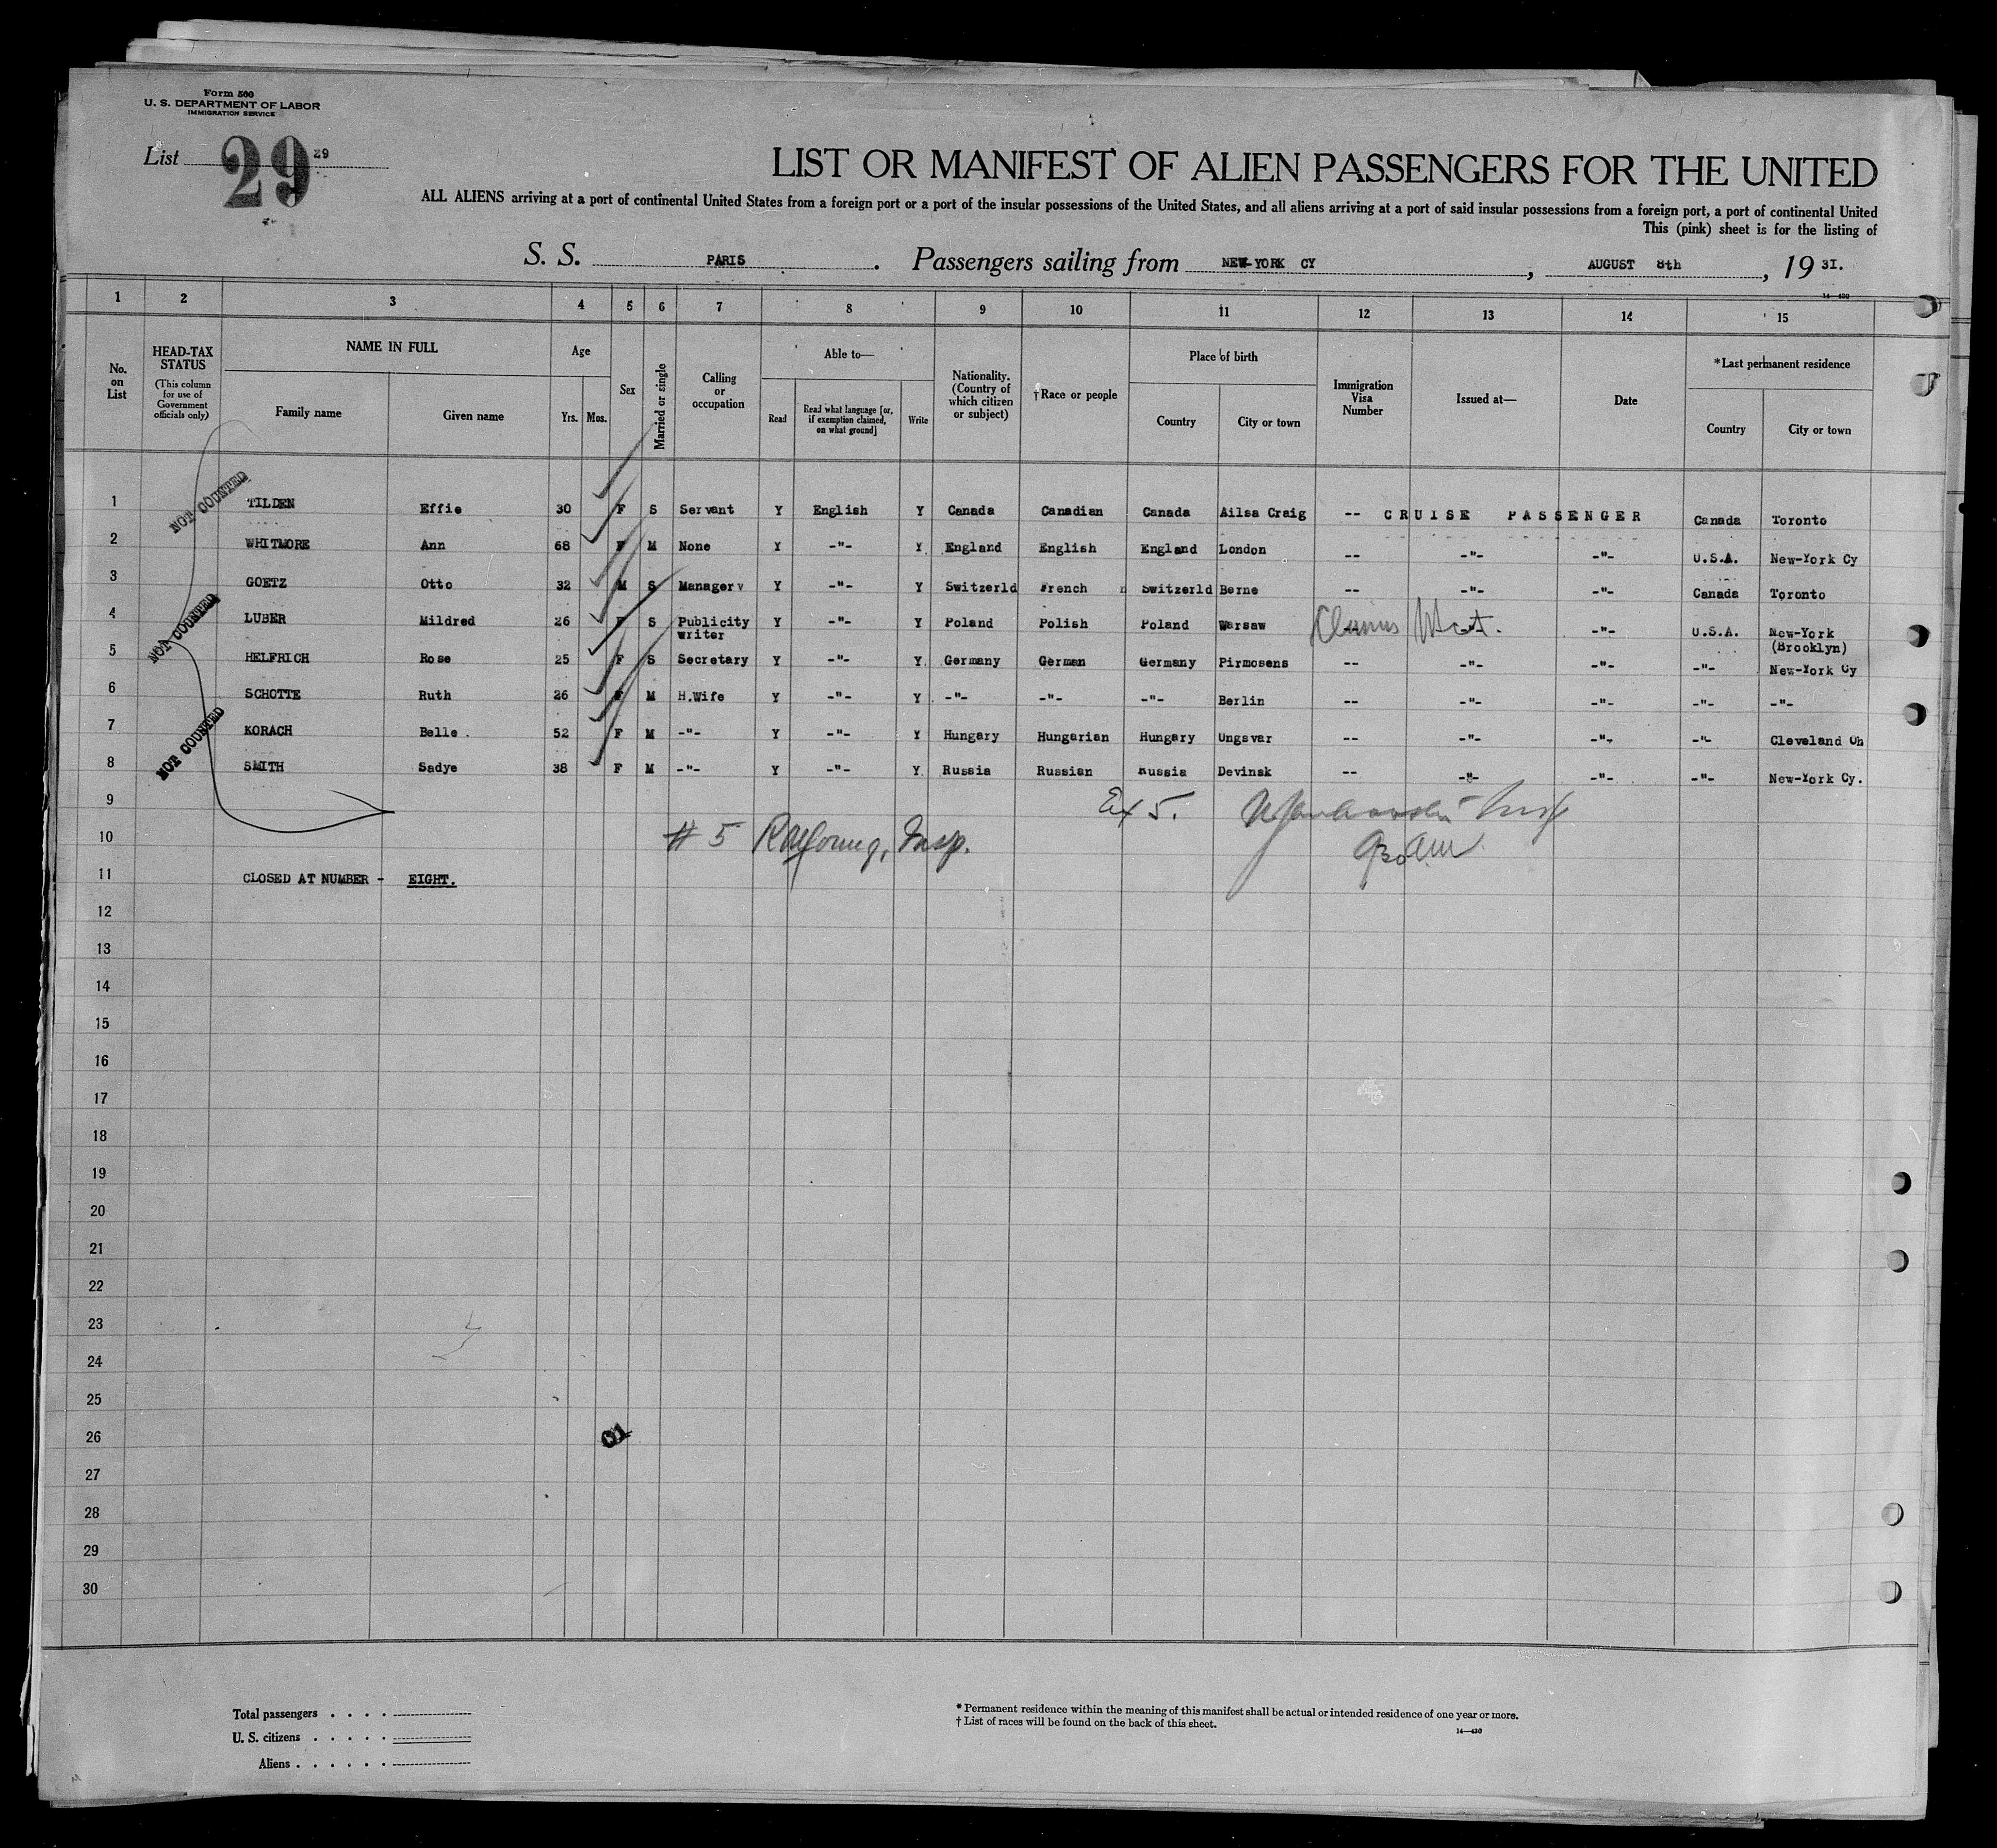 Form 500
U. S. DEPARTMENT OF LABOR
IMMIGRATION SERVICE
List 29 29
LIST OR MANIFEST OF ALIEN PASSENGERS FOR THE UNITED
ALL ALIENS arriving at a port of continental United States from a foreign port or a port of the insular possessions of the United States, and all aliens arriving at a port of said insular possessions from a foreign port, a port of continental United
This (pink) sheet is for the listing of
S. S. PARIS . Passengers sailing from NEW-YORK CY , AUGUST 8th , 19 31.
14—430
1 2 3 4 5 6 7 8 9 10 11 12 13 14 15
No. on List
HEAD-TAX STATUS
(This column for use of Government officials only)
NAME IN FULL
Family name Given name
Age
Yrs. Mos.
Sex
Married or single
Calling or occupation
Able to—
Read
Read what language [or, if exemption claimed, on what ground]
Write
Nationality. (Country of which citizen or subject)
†Race or people
Place of birth
Country City or town
Immigration Visa Number
Issued at—
Date
*Last permanent residence
Country City or town
NOT COUNTED
1 TILDEN Effie 30 F S Servant Y English Y Canada Canadian Canada Ailsa Craig -- CRUISE PASSENGER Canada Toronto
2 WHITMORE Ann 68 F M None Y -"- Y England English England London -- -"- -"- U.S.A. New-York Cy
3 GOETZ Otto 32 M S Manager v Y -"- Y Switzerld French n Switzerld Berne -- -"- -"- Canada Toronto
NOT COUNTED
4 LUBER Mildred 26 F S Publicity writer Y -"- Y Poland Polish Poland Warsaw Claims -"- U.S.A. New-York (Brooklyn)
5 HELFRICH Rose 25 F S Secretary Y -"- Y Germany German Germany Pirmosens -- -"- -"- -"- New-York Cy
6 SCHOTTE Ruth 26 F M H.Wife Y -"- Y -"- -"- -"- Berlin -- -"- -"- -"- -"-
NOT COUNTED
7 KORACH Belle . 52 F M -"- Y -"- Y Hungary Hungarian Hungary Ungsvar -- -"- -"- -"- Cleveland Oh
8 SMITH Sadye 38 F M -"- Y -"- Y Russia Russian Russia Devinsk -- -"- -"- -"- New-York Cy.
9 Ex 5.
10 # 5 Insp.
11 CLOSED AT NUMBER - EIGHT.
12
13
14
15
16
17
18
19
20
21
22
23
24
25
26
27
28
29
30
Total passengers . . . .
U. S. citizens . . . . .
Aliens . . . . . .
* Permanent residence within the meaning of this manifest shall be actual or intended residence of one year or more.
† List of races will be found on the back of this sheet.
14—430